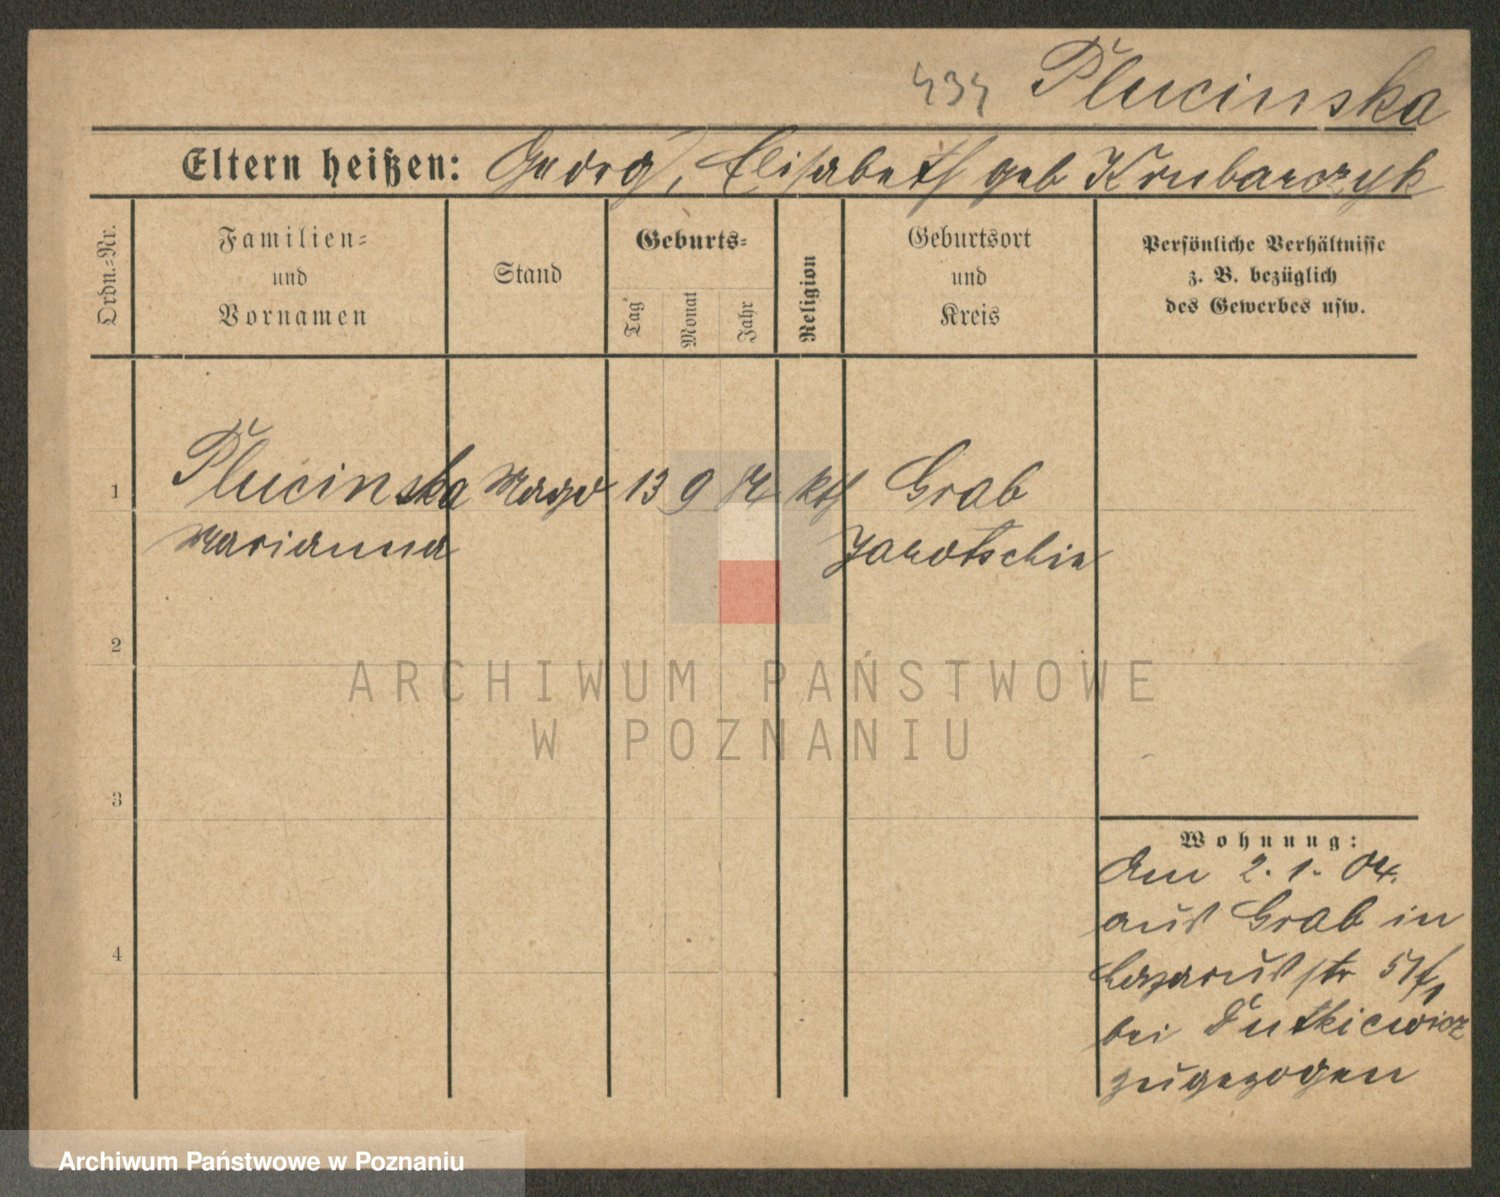 434 Plucinska
Eltern heißen: Georg, Elisabeth geb Krubarczyk
Ordn.-Nr.
Familien-
und
Vornamen
Stand
Geburts-
Tag
Monat
Jahr
Religion
Geburtsort
und
Kreis
Persönliche Verhältnisse
z. B. bezüglich
des Gewerbes usw.
1 Plucinska Magd 13 9 84 kth Grab
Marianna Jarotschin
2
ARCHIWUM PAŃSTWOWE
W POZNANIU
3
Wohnung:
Am 2. 1. 04.
aus Grab in
Lazarusstr 5
bei Dutkiewicz
zugezogen
4
Archiwum Państwowe w Poznaniu